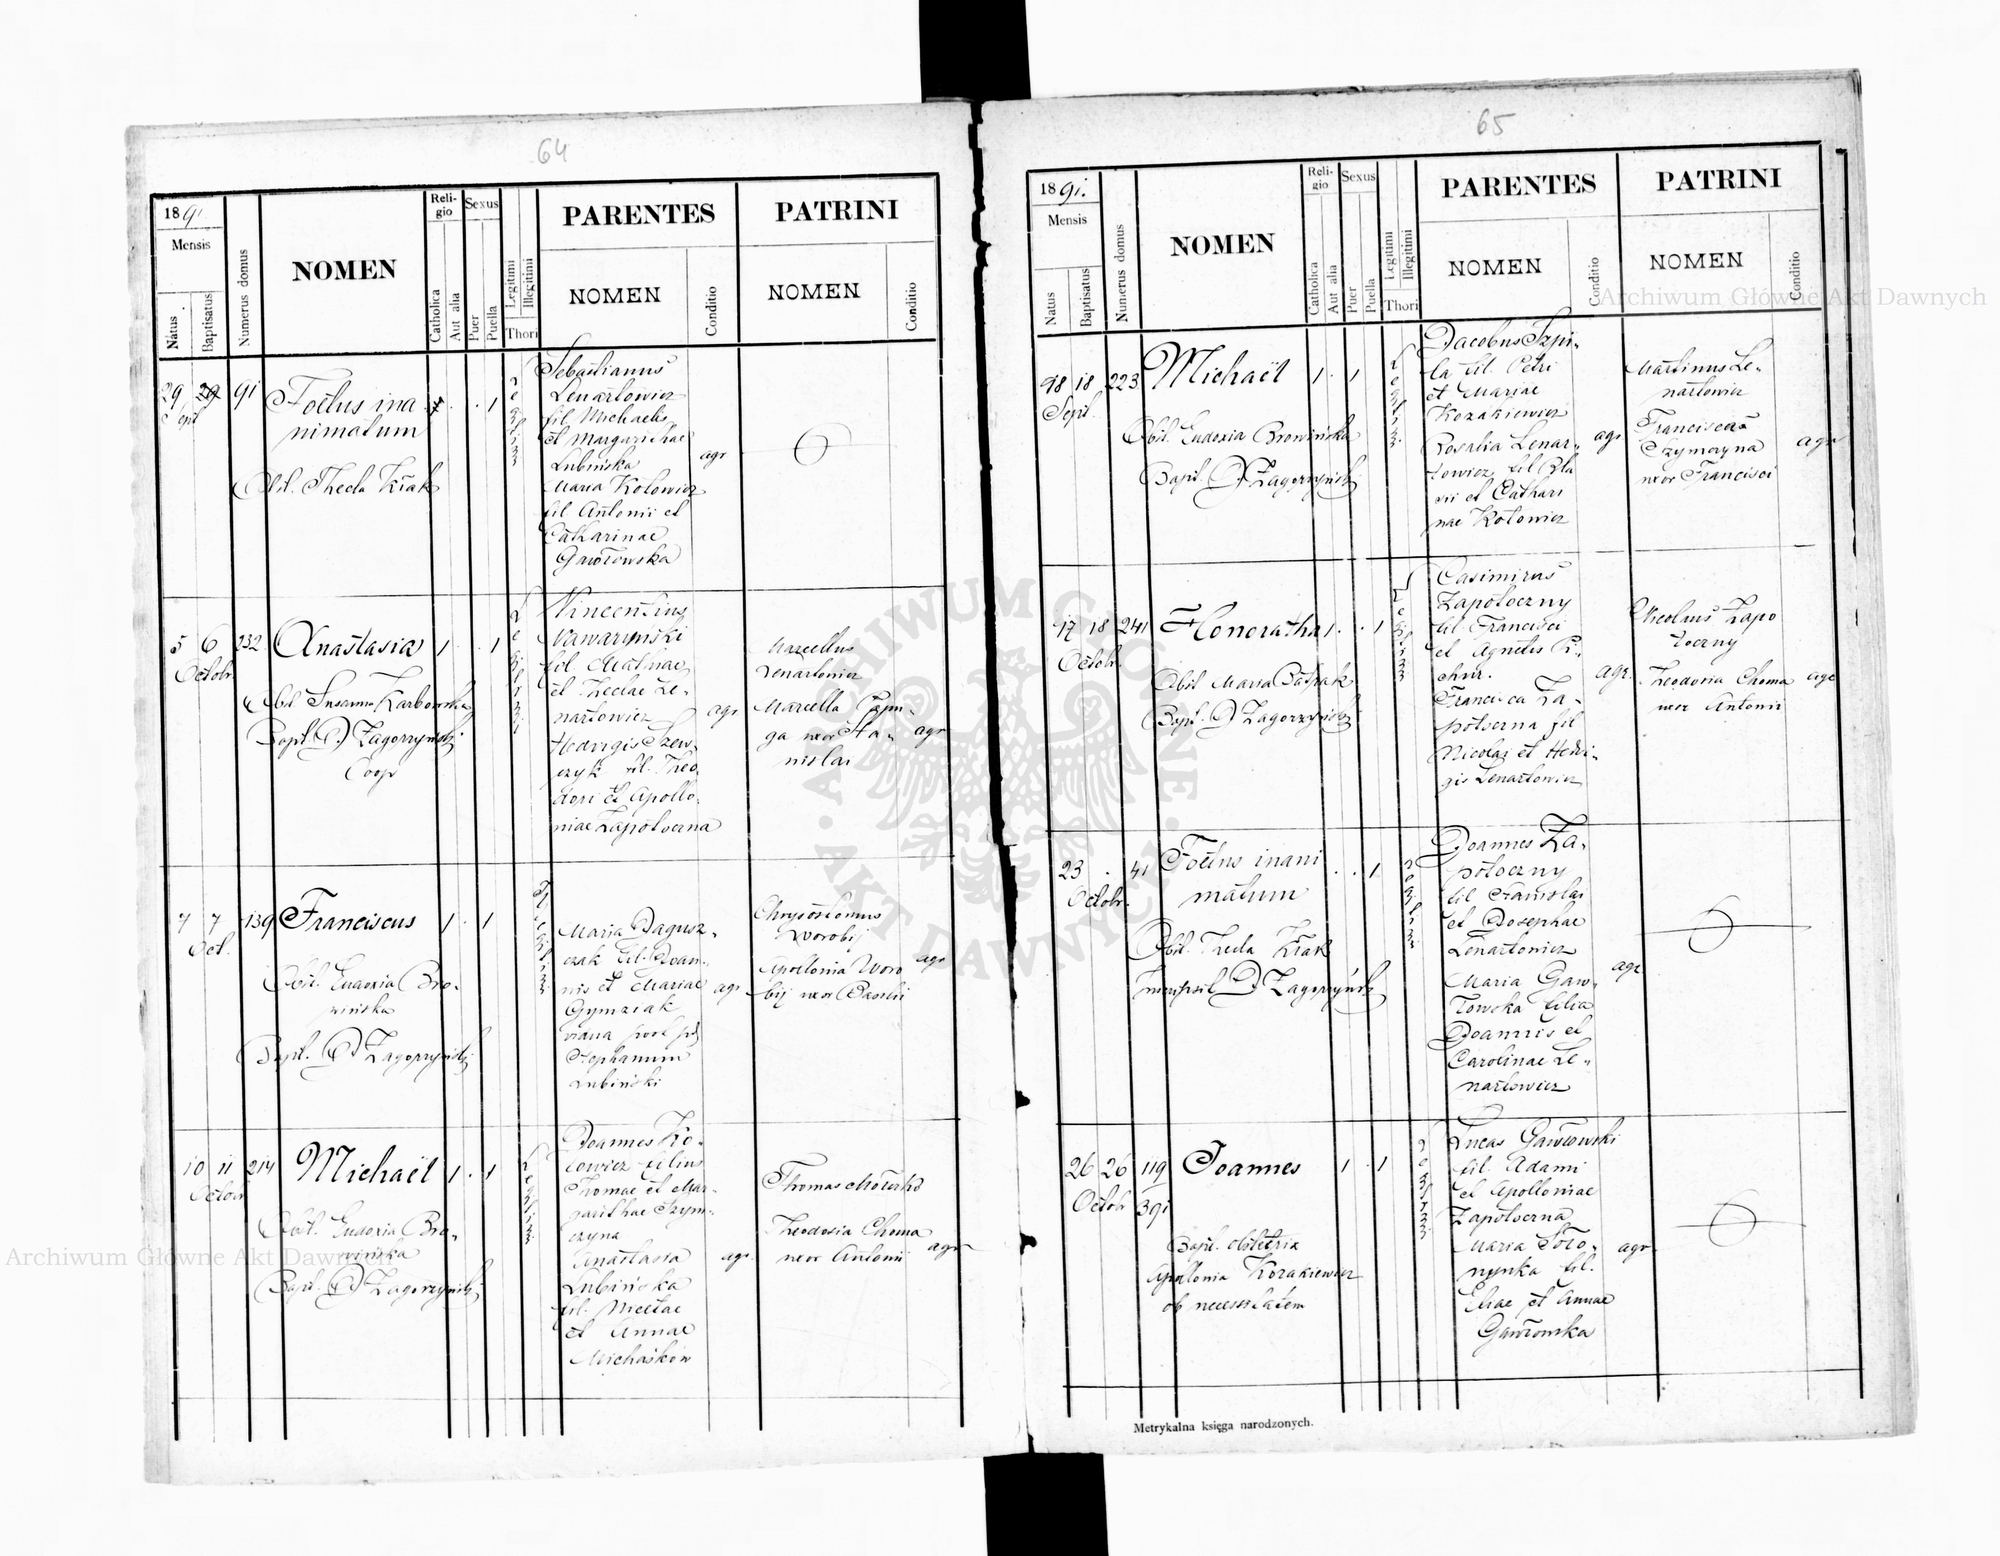 64
1891
Mensis
Natus
Baptisatus
Numerus domus
NOMEN
Reli-
gio
Catholica
Aut alia
Sexus
Puer
Puella
Legitimi
Illegitimi
Thori
PARENTES
NOMEN
Conditio
PATRINI
NOMEN
Conditio
29 29 91
Sept
Foetus ina
nimatum
Obst. Thecla Krak
Sebastianus
Lenartowicz
fil Michaelis
et Margarithae
Lubińska
Maria Kotowicz
fil Antonii et
Catharinae
Gawłowska
agr
5 6 232
Octobr.
Anastasia 1 . . 1
Obst Susanna Karbowska
Bapt. Zagorzyński
Coop
Vincentius
Nawaryński
fil. Mathiae
et Theclae Le-
nartowicz
Hedvigis Szew-
czyk fil. Theo
dori et Apollo-
niae Zapotoczna
agr
Marcellus
Lenartowicz
Marcella
ga uxor Sta-
nislai
agr
7 7 139
Oct.
Franciscus 1 . 1
Obst. Eudoxia Bro-
wińska
Bapt. Zagorzyński
Maria Jagusz-
czak fil. Joan-
nis et Mariae
Gymziak
vidua post
Stephanum
Lubiński
agr
Chrysostomus
Worobij
Apollonia Woro
bij uxor Basilii
agr
10 11 214
Octobr
Michaël 1 . 1
Obst. Eudoxia Bro-
wińska
Bapt. Zagorzyński
Joannes Ko-
towicz filius
Thomae et Mar-
garithae Szym-
czyna
Anastasia
Lubińska
fil. Nicetae
et Annae
Michasków
agr.
Thomas
Theodosia Choma
uxor Antonii
agr
65
1891.
Mensis
Natus
Baptisatus
Numerus domus
NOMEN
Reli-
gio
Catholica
Aut alia
Sexus
Puer
Puella
Legitimi
Illegitimi
Thori
PARENTES
NOMEN
Conditio
PATRINI
NOMEN
Conditio
18 18 223
Sept.
Michaël 1 . 1
Obst. Eudoxia Browińska
Bapt. Zagorzyński
Jacobus Szpi-
la fil. Petri
et Mariae
Kozakiewicz
Rosalia Lenar-
towicz fil Bla
sii et Cathari
nae Kotowicz
agr
Martinus Le-
nartowicz
Francisca
Szymczyna
uxor Francisci
agr
17 18 241
Octobr.
Honoratha 1 . . 1
Obst Maria
Bapt. Zagorzyński
Casimirus
Zapotoczny
fil Francisci
et Agnetis
Francisca Za-
potoczna fil
Nicolai et Hedvi-
gis Lenartowicz
agr.
Nicolaus Zapo
toczny
Theodosia Choma
uxor Antonii
agr
23 . 41
Octobr.
Foetus inani
matum
. . 1
Obst. Thecla Krak
Zagorzyński
Joannes Za-
potoczny
fil Stanislai
et Josephae
Lenartowicz
Maria Gaw-
łowska filia
Joannis et
Carolinae Le-
nartowicz
agr.
26 26 119
Octobr 391
Joannes 1 . 1
Bapt. obstetrix
Apollonia Kozakiewicz
ob necessitatem
Lucas Gawłowski
fil. Adami
et Apolloniae
Zapotoczna
Maria Soło-
nynka fil.
Eliae et Annae
Gawłowska
agr.
Metrykalna księga narodzonych.
Archiwum Główne Akt Dawnych
Archiwum Główne Akt Dawnych
ARCHIWUM GŁÓWNE
AKT DAWNYCH